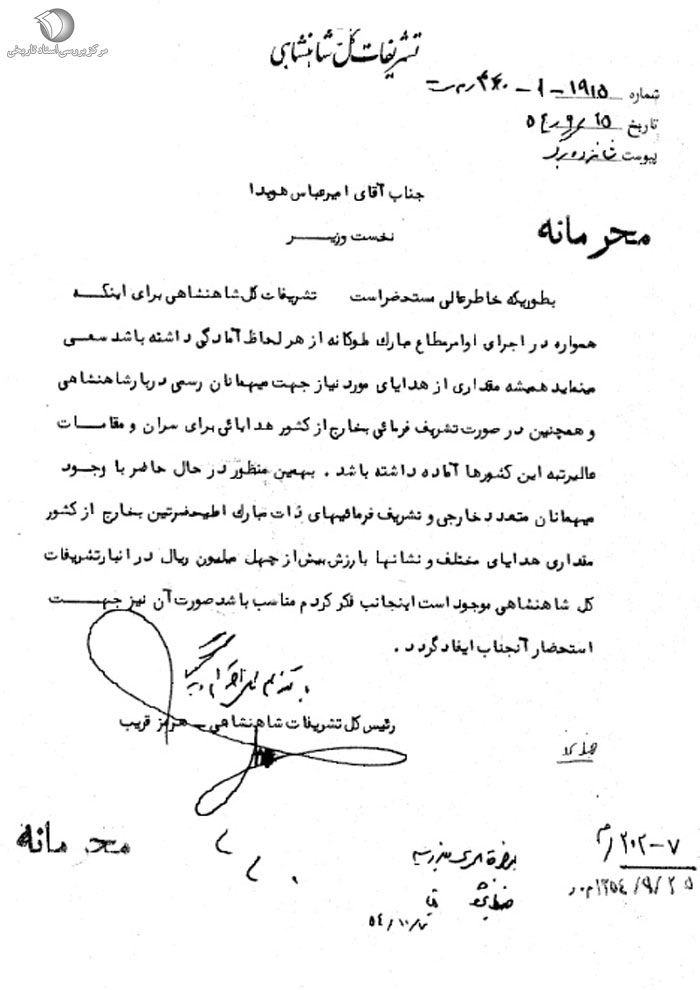 مرکز بررسی اسناد تاریخی
تشریفات کل شاهنشاهی
شماره ۱۹۱۵-۱-
تاریخ ۵۴/۹/۱۵
پیوست شانزده برگ
جناب آقای امیرعباس هویدا
نخست وزیر
محرمانه
بطوریکه خاطرعالی مستحضراست تشریفات کل شاهنشاهی برای اینکه
همواره در اجرای اوامرمطاع مبارک ملوکانه از هر لحاظ آمادگی داشته باشد سعی
مینماید همیشه مقداری از هدایای مورد نیاز جهت میهمانان رسمی دربارشاهنشاهی
و همچنین در صورت تشریف فرمائی بخارج از کشور هدایائی برای سران و مقامات
عالیرتبه این کشورها آماده داشته باشد . بهمین منظور در حال حاضر با وجود
میهمانان متعدد خارجی و تشریف فرمائیهای ذات مبارک اعلیحضرتین بخارج از کشور
مقداری هدایای مختلف و نشانها بارزش بیش از چهل میلیون ریال در انبارتشریفات
کل شاهنشاهی موجود است اینجانب فکر کردم مناسب باشد صورت آن نیز جهت
استحضار آنجناب ایفاد گردد .
رئیس کل تشریفات شاهنشاهی - هرمز قریب
محرمانه
۲۰۲-۷/م
۱۳۵۴/۹/۲۵
ضبط شود
۵۴/۱۰/۷